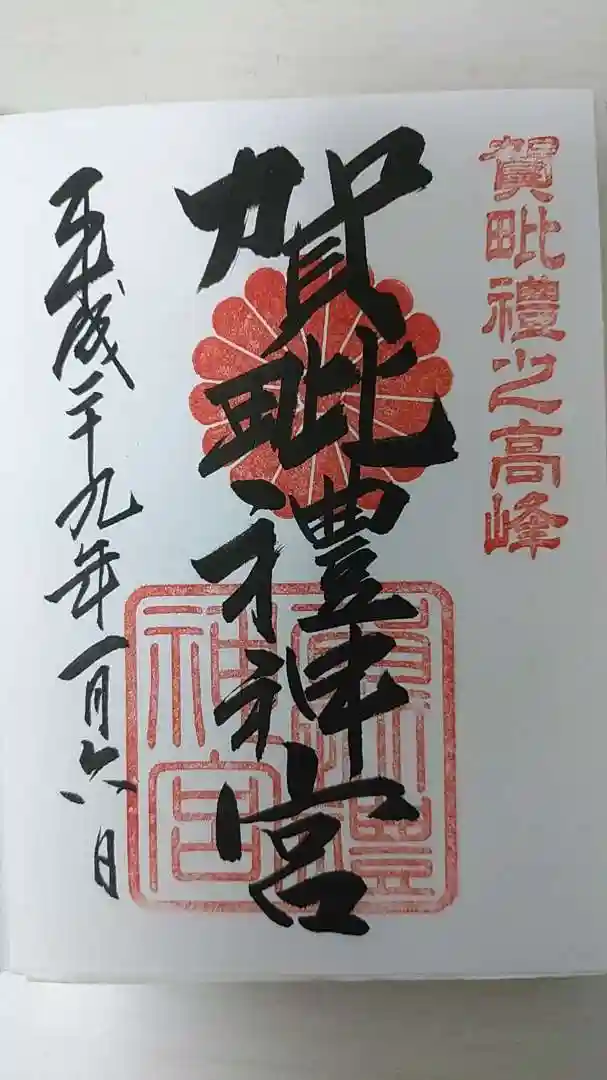 賀毗禮之高峰
賀毗禮神宮
平成二十九年一月六日